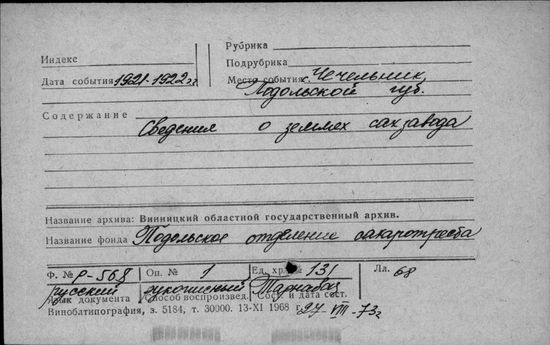 Рубрика
Индекс
Подрубрика
Дата события 1921-1922 гг.
Место события с. Чечельник,
Подольской губ.
Содержание
Сведения о землях сахзавода
Название архива: Винницкий областной государственный архив.
Название фонда Подольское отделение сахаротреста
Ф. № Р-568 Оп. № 1 Ед. хр. № 131 Лл. 68
русский рукописный Тарнабаз
Язык документа Способ воспроизвед. Сост. и дата сост.
Виноблтипография, з. 5184, т. 30000. 13-XI 1968 г. 27-VIII-73г